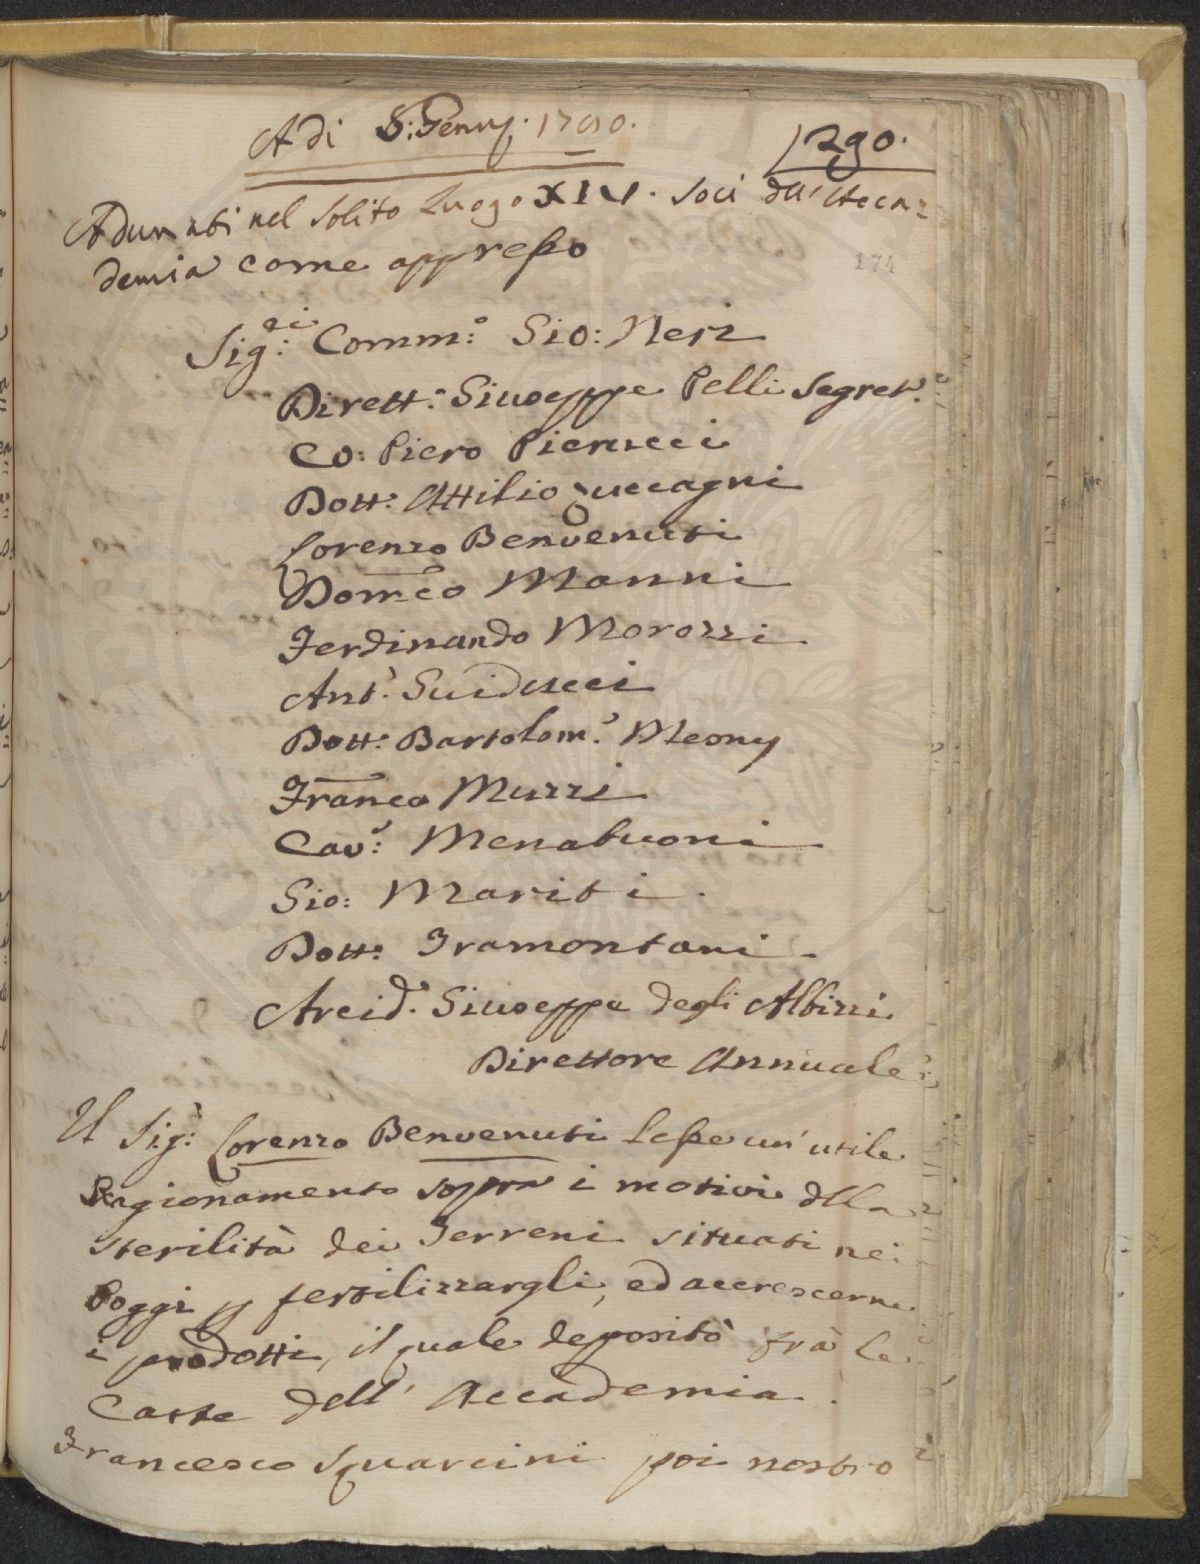 A di 8: Genn: 1790.
1290.
Adunati nel solito Luogo XIV. Soci dell'Acca=
demia come appresso
174
Sig:ri Comm:e Gio: Neri
Dirett:e Giuseppe Pelli Segret:
Co: Piero Pierucci
Dott: Attilio Zuccagni
Lorenzo Benvenuti
Domco Manni
Ferdinando Morozzi
Ant: Guiducci
Dott: Bartolom: Mesny
Franco Muzzi
Cav: Menabuoni
Gio: Mariti
Dott: Tramontani
Arcid: Giuseppe degli Albizzi
Direttore Annuale
Il Sig: Lorenzo Benvenuti lesse un' utile
Ragionamento sopra i motivi della
sterilità dei Terreni situati nei
Poggi p fertilizzargli, ed accrescerne
i prodotti, il quale depositò frà le
Carte dell' Accademia.
Francesco Squarcini poi nostro